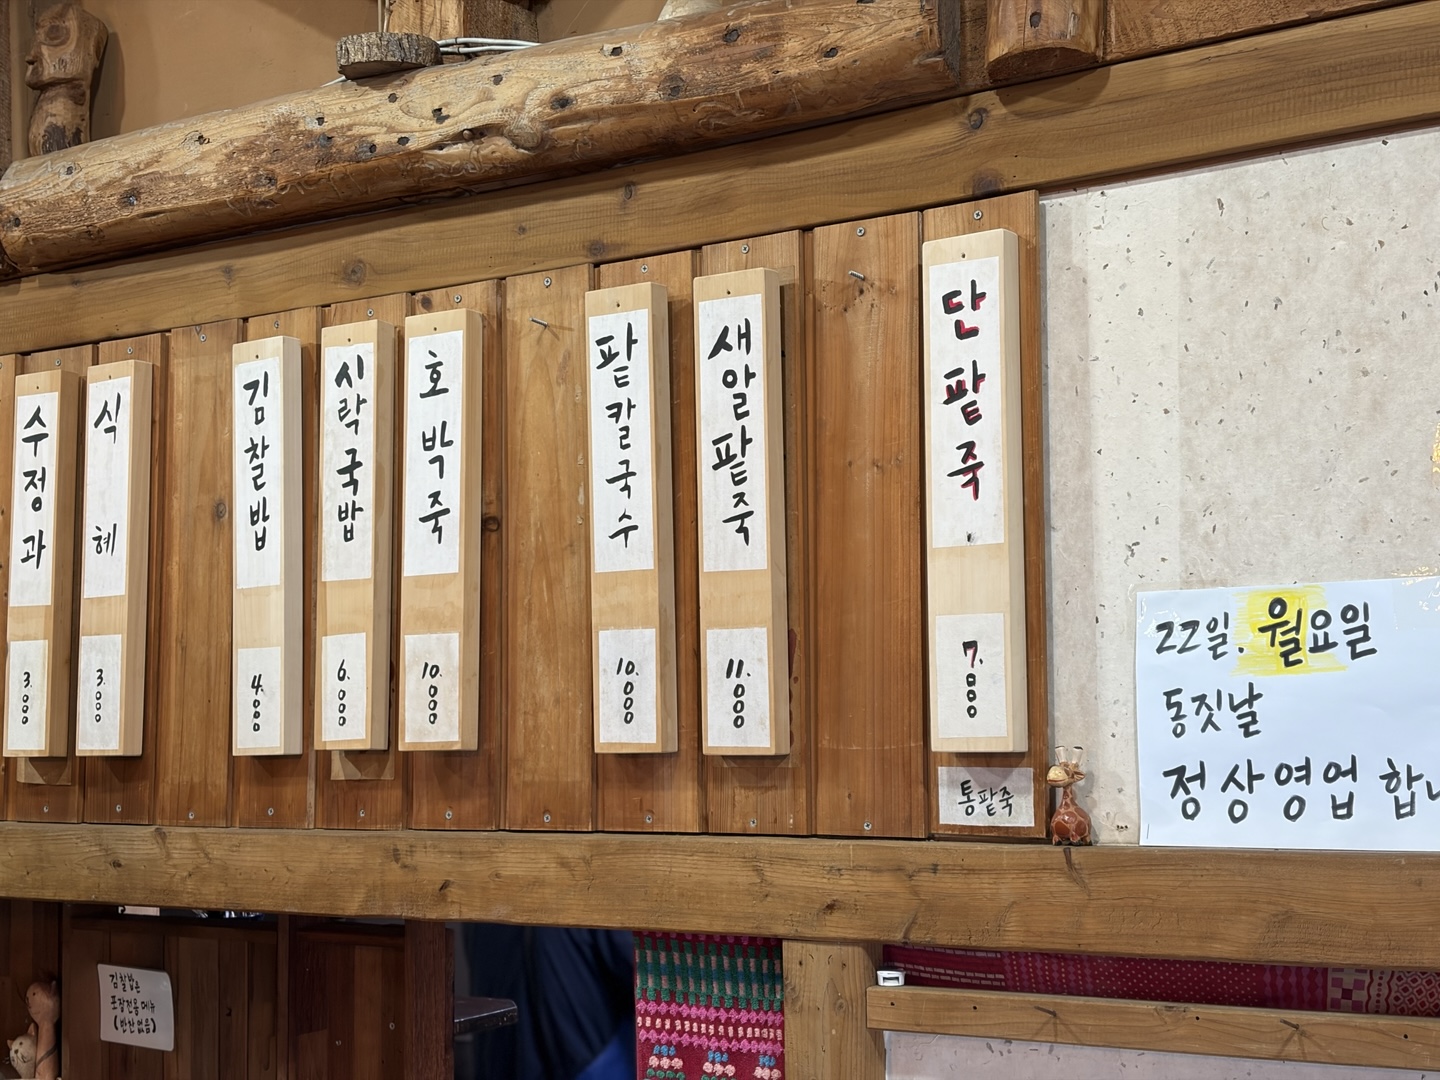 수정과
3.000
식혜
3.000
김찰밥
4.000
시락국밥
6.000
호박죽
10.000
팥칼국수
10.000
새알팥죽
11.000
단팥죽
7.000
통팥죽
22일. 월요일
동짓날
정상영업 합
김찰밥은
포장전용 메뉴
(반찬없음)